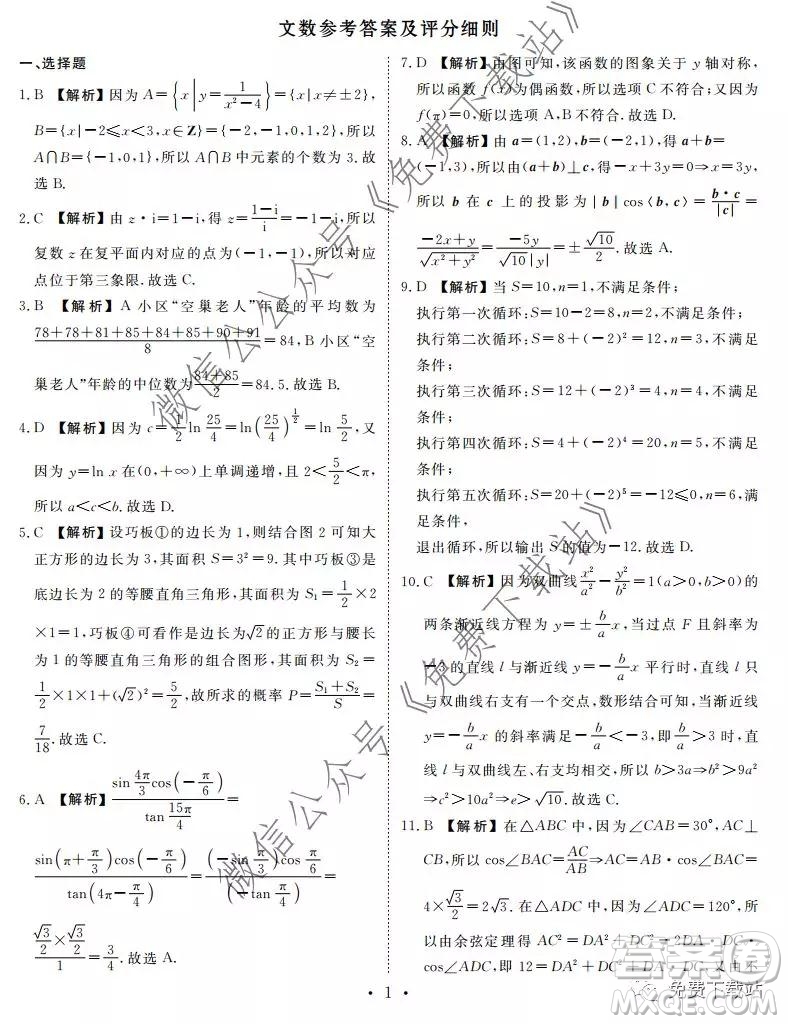 文数参考答案及评分细则
一、选择题
1. B 【解析】因为 A={x|y=1/(x²-4)}={x|x≠±2},
B={x|-2≤x<3,x∈Z}={-2,-1,0,1,2},所以
A∩B={-1,0,1},所以 A∩B 中元素的个数为 3.故
选 B.
2. C 【解析】由 z·i=1-i,得 z=(1-i)/i=-1-i,所以
复数 z 在复平面内对应的点为(-1,-1),所以对应
点位于第三象限.故选 C.
3. B 【解析】A 小区“空巢老人”年龄的平均数为
(78+78+81+85+84+85+90+91)/8=84,B 小区“空
巢老人”年龄的中位数为(84+85)/2=84.5.故选 B.
4. D 【解析】因为 c=1/2 ln 25/4=ln(25/4)^(1/2)=ln 5/2,又
因为 y=ln x 在(0,+∞)上单调递增,且 2<5/2<π,
所以 a<c<b.故选 D.
5. C 【解析】设巧板①的边长为 1,则结合图 2 可知大
正方形的边长为 3,其面积 S=3²=9.其中巧板③是
底边长为 2 的等腰直角三角形,其面积为 S₁=1/2×2
×1=1,巧板④可看作是边长为√2的正方形与腰长
为 1 的等腰直角三角形的组合图形,其面积 S₂=
1/2×1×1+(√2)²=5/2,故所求的概率 P=(S₁+S₂)/S=
7/18.故选 C.
6. A 【解析】(sin 4π/3 cos(-π/6))/(tan 15π/4)=
(sin(π+π/3)cos(-π/6))/(tan(4π-π/4))=((-sin π/3)cos(-π/6))/(-tan π/4)=
(√3/2×√3/2)/1=3/4.故选 A.
7. D 【解析】由图可知,该函数的图象关于 y 轴对称,
所以函数 f(x)为偶函数,所以选项 C 不符合;又因为
f(π)=0,所以选项 A,B 不符合.故选 D.
8. A 【解析】由 a=(1,2),b=(-2,1),得 a+b=
(-1,3),所以由(a+b)⊥c,得-x+3y=0⇒x=3y,
所以 b 在 c 上的投影为|b|cos⟨b,c⟩=(b·c)/|c|=
(-2x+y)/√(x²+y²)=-5y/(√10|y|)=±√10/2.故选 A.
9. D 【解析】当 S=10,n=1,不满足条件;
执行第一次循环:S=10-2=8,n=2,不满足条件;
执行第二次循环:S=8+(-2)²=12,n=3,不满足
条件;
执行第三次循环:S=12+(-2)³=4,n=4,不满足
条件;
执行第四次循环:S=4+(-2)⁴=20,n=5,不满足
条件;
执行第五次循环:S=20+(-2)⁵=-12≤0,n=6,满足
条件,
退出循环,所以输出 S 的值为-12.故选 D.
10. C 【解析】因为双曲线x²/a²-y²/b²=1(a>0,b>0)的
两条渐近线方程为 y=±b/a x,当过点 F 且斜率为
-3 的直线 l 与渐近线 y=-b/a x 平行时,直线 l 只
与双曲线右支有一个交点,数形结合可知,当渐近线
y=-b/a x 的斜率满足-b/a<-3,即b/a>3 时,直
线 l 与双曲线左、右支均相交,所以 b>3a⇒b²>9a²
⇒c²>10a²⇒e>√10.故选 C.
11. B 【解析】在△ABC 中,因为∠CAB=30°,AC⊥
CB,所以 cos∠BAC=AC/AB⇒AC=AB·cos∠BAC=
4×√3/2=2√3.在△ADC 中,因为∠ADC=120°,所
以由余弦定理得 AC²=DA²+DC²-2DA·DC·
cos∠ADC,即 12=DA²+DC²+DA·DC,又由不
·1·
微信公众号《免费下载站》
微信公众号《免费下载站》
免费下载站
答案圈